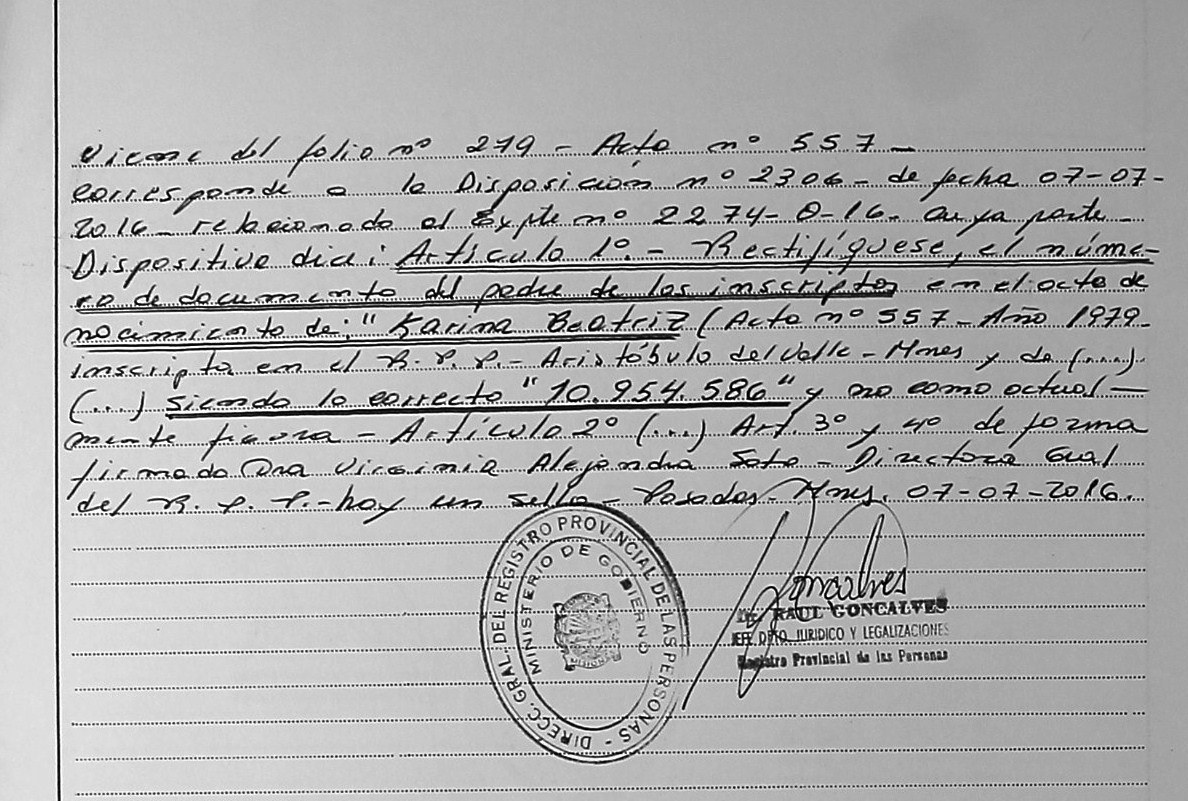 Viene del folio nº 279 - Acta nº 557 -
corresponde a la Disposición nº 2306 - de fecha 07-07-
2016 - relacionado al Expte nº 2274-O-16. cuya parte
Dispositiva dice: Artículo 1º. - Rectifíquese, el núme-
ro de documento del padre de los inscriptos en el acta de
nacimiento de: "Karina Beatriz (Acta nº 557 - Año 1979 -
inscripta en el R.P.P. - Aristóbulo del Valle - Mnes y de (....)
(....) siendo lo correcto "10.954.586" y no como actual-
mente figura - Artículo 2º (....) Art. 3º y 4º de forma
firmado Dra Virginia Alejandra Soto - Directora Gral
del R. P. P. - hay un sello - Posadas - Mnes. 07-07-2016.
DIRECC. GRAL. DEL REGISTRO PROVINCIAL DE LAS PERSONAS -
MINISTERIO DE GOBIERNO
MISIONES
Goncalves
RAUL GONCALVES
JEFE DPTO. JURIDICO Y LEGALIZACIONES
Registro Provincial de las Personas